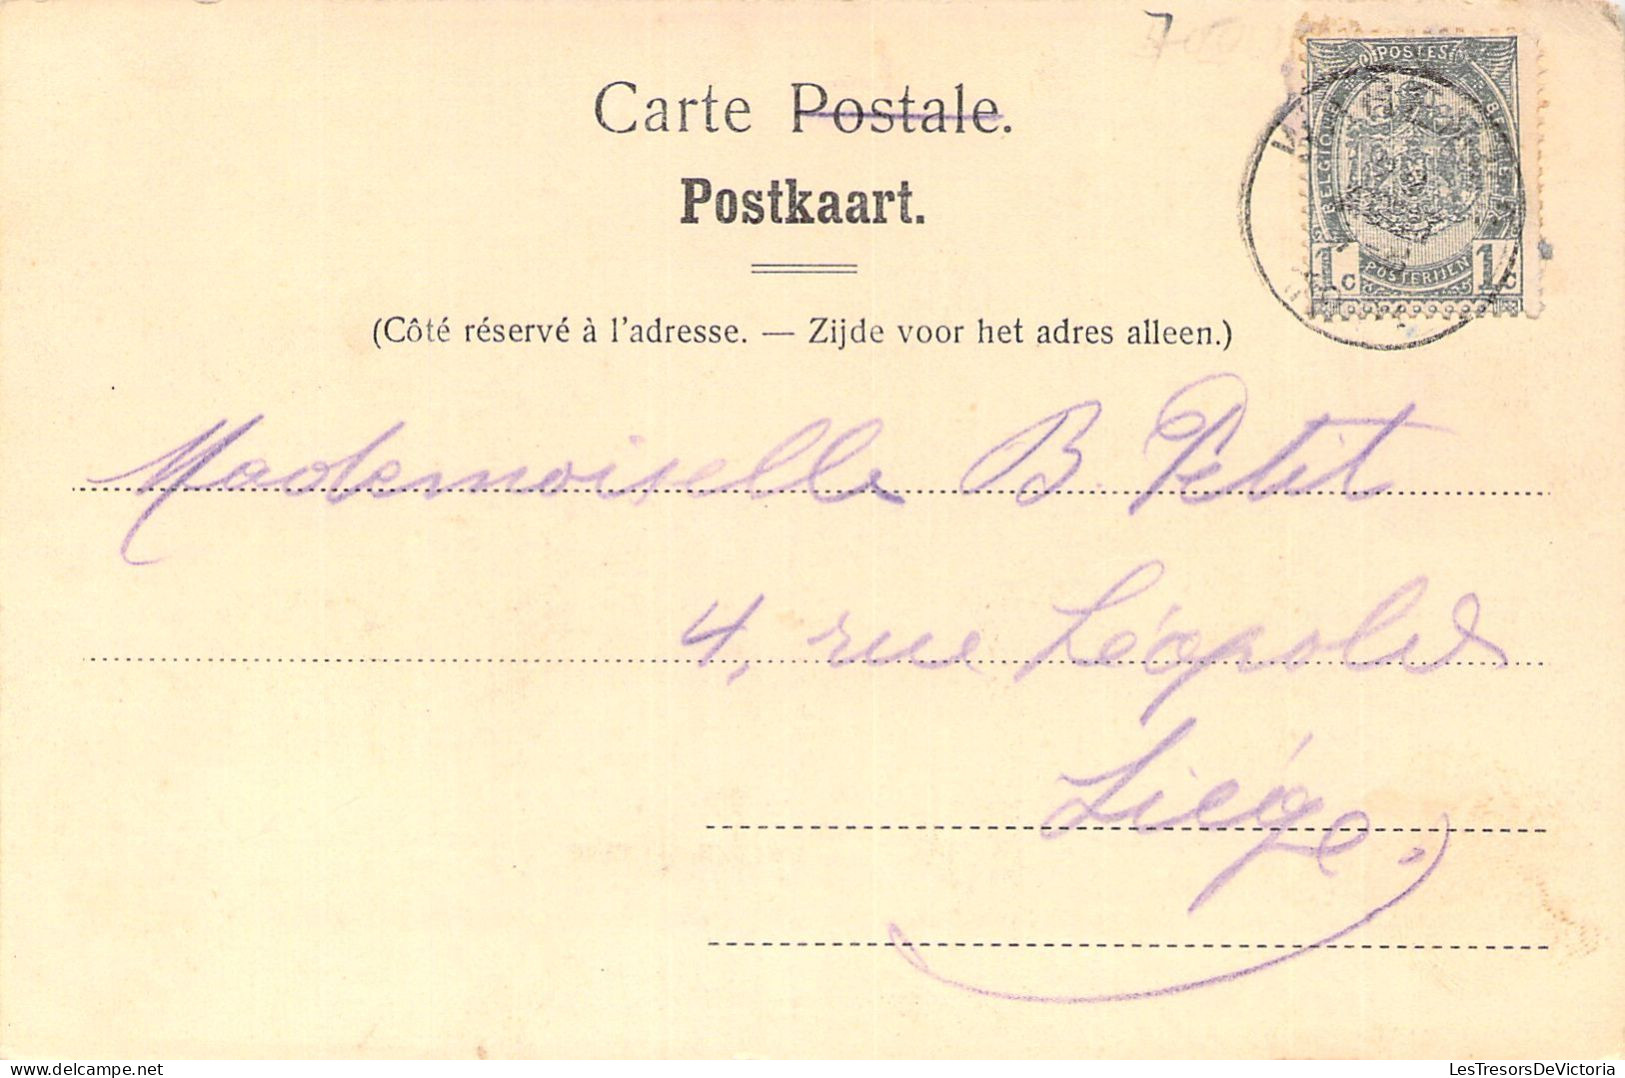 Carte Postale.
Postkaart.
(Côté réservé à l'adresse. — Zijde voor het adres alleen.)
POSTES
BELGIQUE
BELGIE
POSTERIJEN
1c 1c
Mademoiselle B. Petit
4, rue Léopold
Liége.
LesTresorsDeVictoria